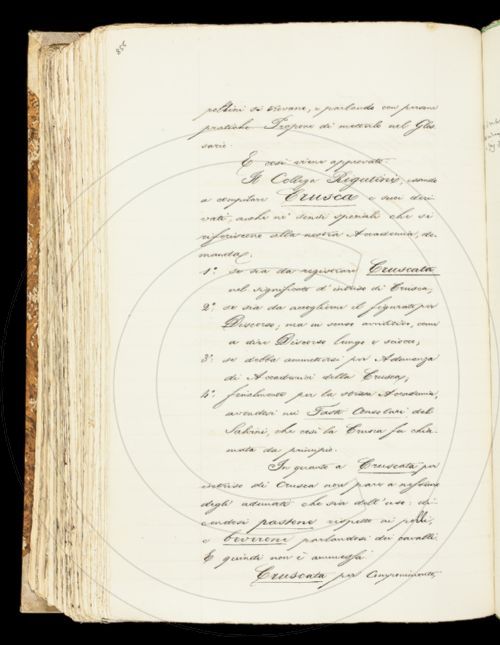 358
pettini si trovano, e parlando con persone
pratiche. Propone di metterlo nel Glos
sario.
E così viene approvato.
Il Collega Rigutini, avendo
a compilare Crusca e suoi deri
vati, anche ne' sensi speciali che si
riferiscono alla nostra Accademia, do
manda,
1.° se sia da registrare Cruscata
nel significato d'intriso di Crusca;
2.° se sia da accoglierne il figurato per
Discorso, ma in senso avvilitivo, come
a dire Discorso lungo e sciocco;
3.° se debba ammettersi per Adunanza
di Accademici della Crusca;
4.° finalmente per la stessa Accademia,
avendosi nei Fasti Consolari del
Salvini, che così la Crusca fu chia-
mata da principio.
In quanto a Cruscata per
intriso di Crusca non pare a nessuno
degli adunati che sia dell'uso: di-
cendosi pastone rispetto ai polli,
e beverone parlandosi dei cavalli.
E quindi non è ammessa.
Cruscata per Componimento,